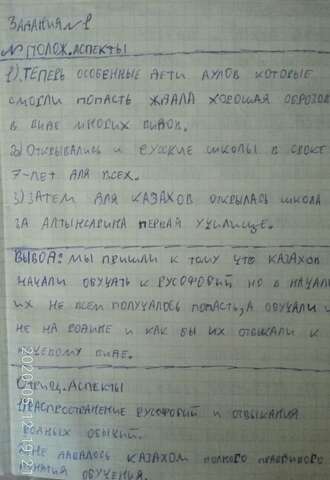 ЗАДАНИЯ №1
№ ПОЛОЖ.АСПЕКТЫ
1) ТЕПЕРЬ ОСОБЕННЫЕ ДЕТИ АУЛОВ КОТОРЫЕ
СМОГЛИ ПОПАСТЬ ЖДАЛА ХОРОШАЯ ОБРОЗОВ
В ВИДЕ МНОГИХ ВИДОВ.
2) ОТКРЫВАЛИСЬ И РУССКИЕ ШКОЛЫ В СРОКТ
7-ЛЕТ ДЛЯ ВСЕХ.
3) ЗАТЕМ ДЛЯ КАЗАХОВ ОТКРЫЛАСЬ ШКОЛА
ЗА АЛТЫНСАРИНА ПЕРВАЙ УЧИЛИЩЕ.
ВЫВОД: МЫ ПРИШЛИ К ТОМУ ЧТО КАЗАХОВ
НАЧАЛИ ОБУЧАТЬ К РУСОФОРИЙ НО В НАЧАЛИ
ИХ НЕ ВСЕМ ПОЛУЧАЛОСЬ ПОПАСТЬ, А ОБУЧАЛИ И
НЕ НА РОДНОМ И КАК БЫ ИХ ОТВЫКАЛИ К
ВИДЕ.
ОТРИЦ.АСПЕКТЫ
1) РАСПРОСТРАНЕНИЕ РУСОФОРИЙ И ОТВЫКАНИЯ
РОДНЫХ ОБЫЧИЙ.
НЕ ДАВАЛОСЬ КАЗАХОМ ПОЛНОГО ПРАВИНОГО
ОБУЧЕНИЯ.
2020/05/12 19:21